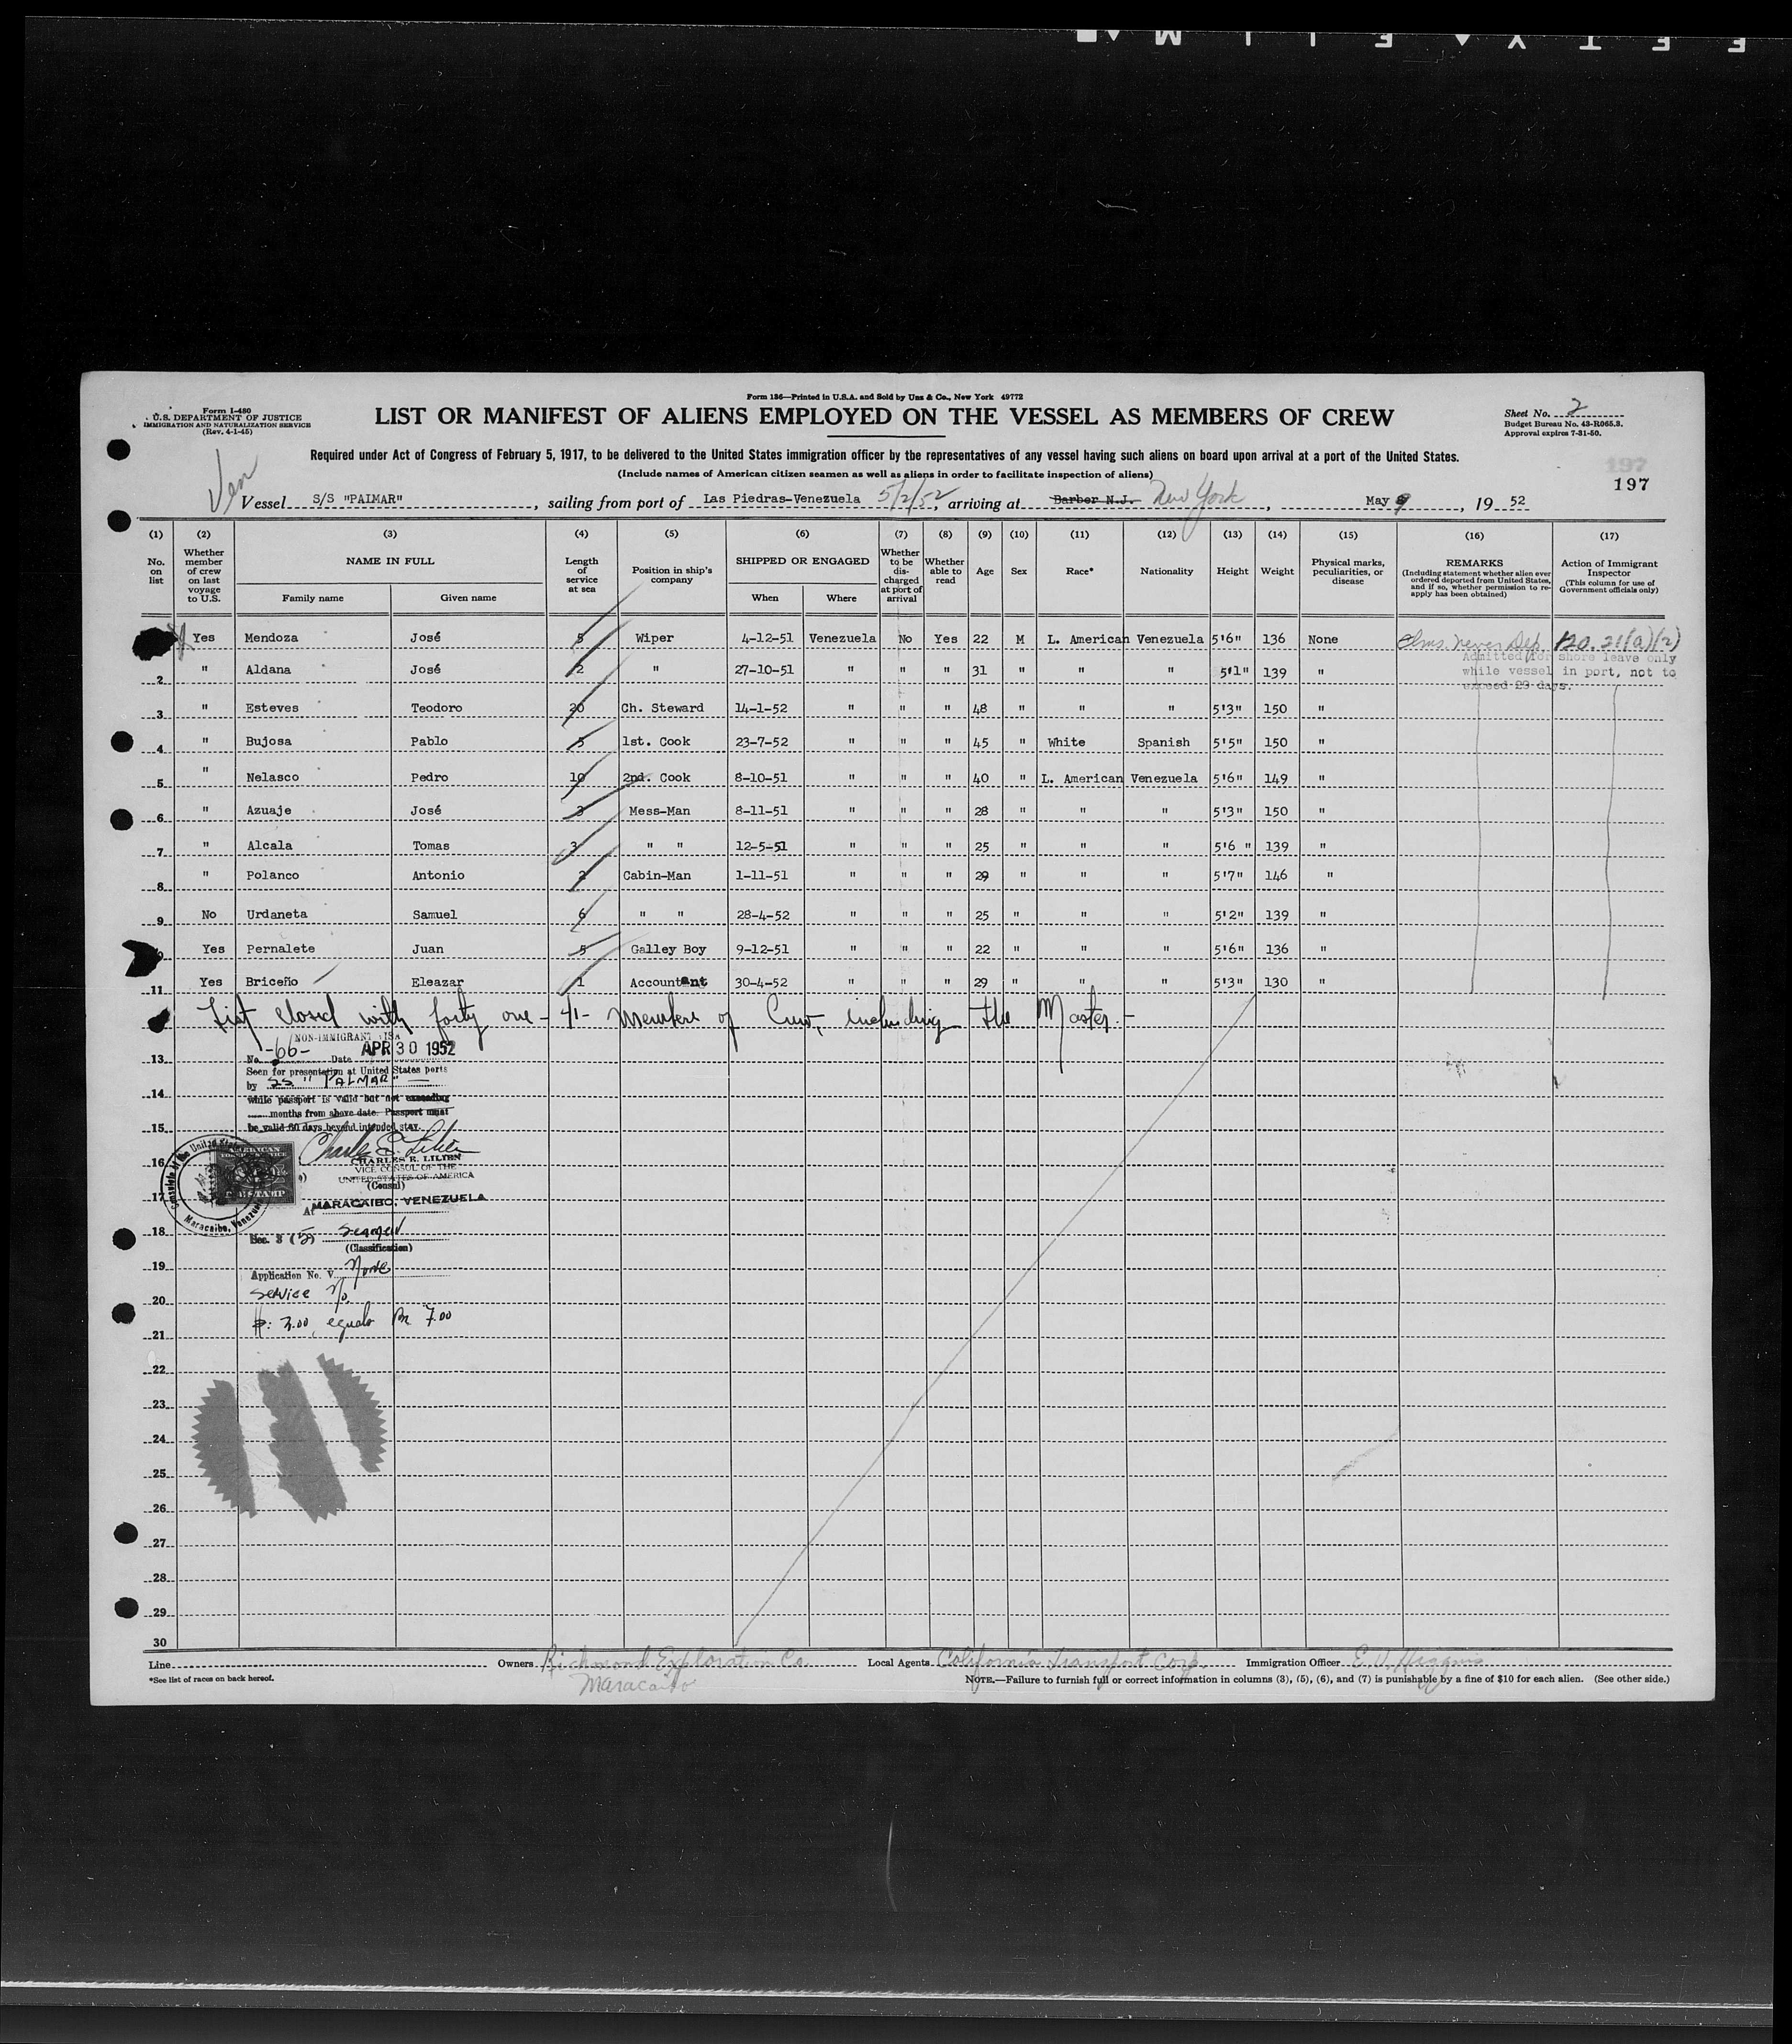 Form I-480
U.S. DEPARTMENT OF JUSTICE
IMMIGRATION AND NATURALIZATION SERVICE
(Rev. 4-1-45)
Form 136—Printed in U.S.A. and Sold by Unz & Co., New York 49772
LIST OR MANIFEST OF ALIENS EMPLOYED ON THE VESSEL AS MEMBERS OF CREW
Sheet No. 2
Budget Bureau No. 43-R065.3.
Approval expires 7-31-50.
Required under Act of Congress of February 5, 1917, to be delivered to the United States immigration officer by the representatives of any vessel having such aliens on board upon arrival at a port of the United States.
(Include names of American citizen seamen as well as aliens in order to facilitate inspection of aliens)
197
197
Ven
Vessel S/S "PALMAR", sailing from port of Las Piedras-Venezuela 5/2/52, arriving at Barber N.J. New York, May 9, 19 52
(1) (2) (3) (4) (5) (6) (7) (8) (9) (10) (11) (12) (13) (14) (15) (16) (17)
No. on list
Whether member of crew on last voyage to U.S.
NAME IN FULL
Family name
Given name
Length of service at sea
Position in ship's company
SHIPPED OR ENGAGED
When
Where
Whether to be discharged at port of arrival
Whether able to read
Age
Sex
Race*
Nationality
Height
Weight
Physical marks, peculiarities, or disease
REMARKS
(Including statement whether alien ever ordered deported from United States, and if so, whether permission to re-apply has been obtained)
Action of Immigrant Inspector
(This column for use of Government officials only)
Yes Mendoza José 5 Wiper 4-12-51 Venezuela No Yes 22 M L. American Venezuela 5'6" 136 None never Dep. 120.21(a)(2)
Admitted for shore leave only
while vessel in port, not to
exceed 29 days.
2 " Aldana José 2 " 27-10-51 " " " 31 " " " 5'1" 139 "
3 " Esteves Teodoro 20 Ch. Steward 14-1-52 " " " 48 " " " 5'3" 150 "
4 " Bujosa Pablo 5 1st. Cook 23-7-52 " " " 45 " White Spanish 5'5" 150 "
5 " Nelasco Pedro 10 2nd. Cook 8-10-51 " " " 40 " L. American Venezuela 5'6" 149 "
6 " Azuaje José 3 Mess-Man 8-11-51 " " " 28 " " " 5'3" 150 "
7 " Alcala Tomas 3 " " 12-5-51 " " " 25 " " " 5'6 " 139 "
8 " Polanco Antonio 2 Cabin-Man 1-11-51 " " " 29 " " " 5'7" 146 "
9 No Urdaneta Samuel 6 " " 28-4-52 " " " 25 " " " 5'2" 139 "
Yes Pernalete Juan 5 Galley Boy 9-12-51 " " " 22 " " " 5'6" 136 "
11 Yes Briceño Eleazar 1 Accountant 30-4-52 " " " 29 " " " 5'3" 130 "
12 List closed with forty one - 41- Members of Crew, including the Master.-
NON-IMMIGRANT VISA
13 No. -66- Date APR 30 1952
Seen for presentation at United States ports
by SS "PALMAR" —
14 while passport is valid but not exceeding
months from above date. Passport must
15 be valid 60 days beyond intended stay.
Charles E. Lilien
16 CHARLES E. LILIEN
VICE CONSUL OF THE
UNITED STATES OF AMERICA
(Consul)
17 At MARACAIBO, VENEZUELA
Consulate of the United States
Maracaibo, Venezuela
AMERICAN
FOREIGN SERVICE
FEE STAMP
18 Sec. 3 (5) Seamen
(Classification)
19 Application No. V None
20 Service No.
$: 2.00, equals Bs 7.00
21
22
23
24
25
26
27
28
29
30
Line
Owners Richmond Exploration Co.
Maracaibo
Local Agents California Transport Corp.
Immigration Officer E. J. Higgins
*See list of races on back hereof.
NOTE.—Failure to furnish full or correct information in columns (3), (5), (6), and (7) is punishable by a fine of $10 for each alien. (See other side.)